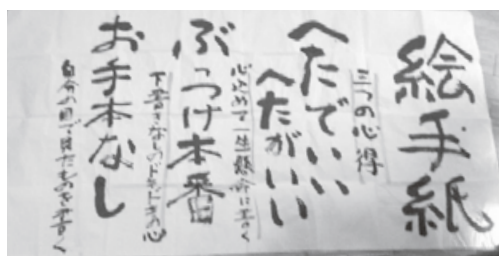 絵手紙
三つの心得
へたでいい
へたがいい
心をこめて一生懸命にかく
ぶっつけ本番
下書きなしのドキドキの心
お手本なし
自分の目で見たものを書く